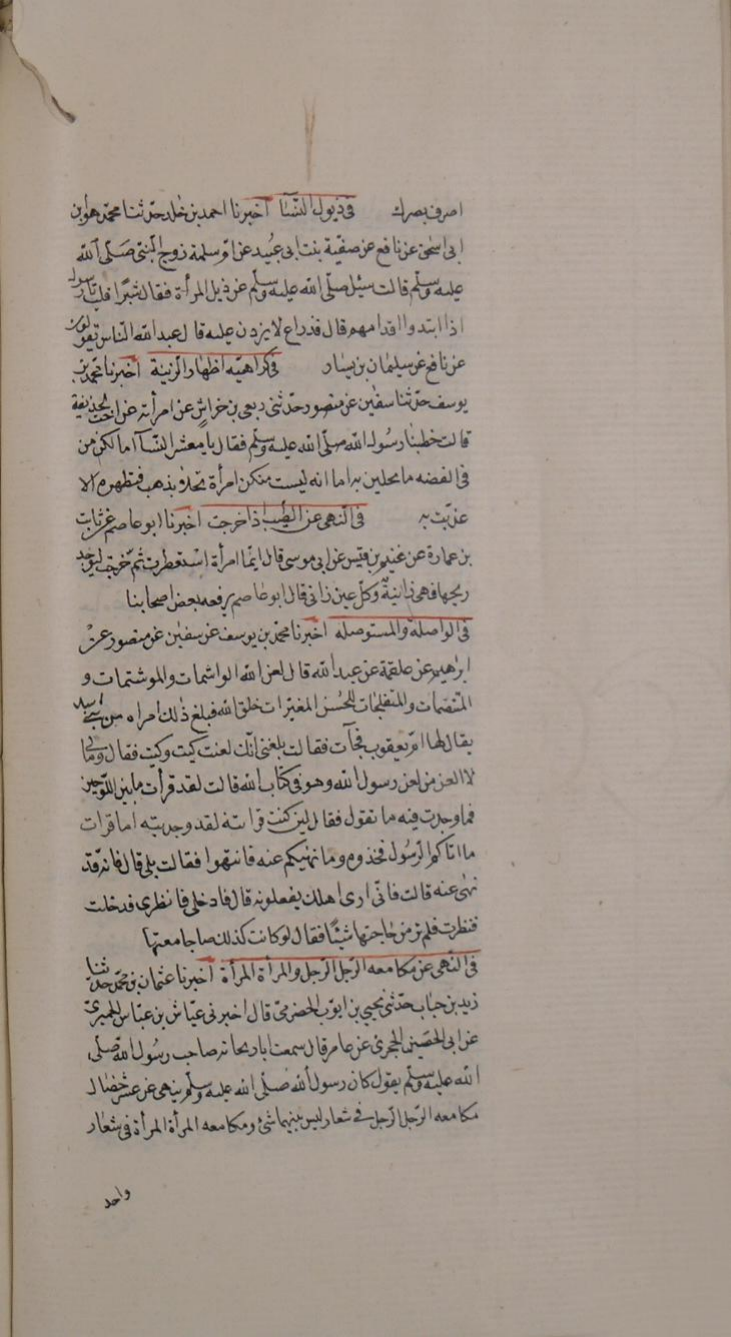 اصرف بصرك في ذيول النسآ اخبرنا احمد بن خلد حدثنا محمد هو ابن
ابي اسحق عن نافع عن صفية بنت ابي عبيد عن ام سلمة زوج النبي صلى الله
عليه وسلم قالت سئل صلى الله عليه وسلم عن ذيل المرأة فقال شبرا قلت يا رسول الله
اذا ابتدوا اقدامهم قال فذراع لا يزدن عليه قال عبد الله الناس يقولون
عن نافع عن سليمان بن يسار في كراهيه اظهار الزينة اخبرنا محمد بن
يوسف حدثنا سفين عن منصور حدثني ربعي بن خراش عن امرأته عن اخت لحذيفة
قالت خطبنا رسول الله صلى الله عليه وسلم فقال يا معشر النسآ اما لكن من
في الفضه ما يحلين به اما انه ليست منكن امرأة تحلا بذهب فتظهره الا
عذبت به في النهي عن الطيب اذا خرجت اخبرنا ابو عاصم عن ثابت
بن عمارة عن غنيم بن قيس عن ابي موسى قال ايما امرأة استعطرت ثم خرجت ليوجد
ريحها فهي زانية وكل عين زاني قال ابو عاصم يرفعه بعض اصحابنا
في الواصلة والمستوصله اخبرنا محمد بن يوسف عن سفين عن منصور عن
ابراهيم عن علقمة عن عبد الله قال لعن الله الواشمات والموشتمات و
المتنمصات والمتفلجات للحسن المغيرات خلق الله فبلغ ذلك امراه من بني اسد
يقال لها ام يعقوب فجآت فقالت بلغني انك لعنت كيت وكيت فقال ومالي
لا العن من لعن رسول الله وهو في كتاب الله قالت لقد قرأت ما بين اللوحين
فما وجدت فيه ما تقول فقال لين كنت قراته لقد وجدتيه اما قرات
ما اتاكم الرسول فخذوه وما نهيكم عنه فانتهوا فقالت بلى قال فانه قد
نهى عنه قالت فاني ارى اهلك يفعلونه قال فادخلي فانظري فدخلت
فنظرت فلم تر من حاجتها شيئا فقال لو كانت كذلك ما جامعتها
في النهي عن مكامعه الرجل الرجل والمرأة المرأة اخبرنا عثمان بن محمد حدثنا
زيد بن حباب حدثني يحيى بن ايوب الحضرمي قال اخبرني عياش بن عباس الحميري
عن ابي الحصين الحجري عن عامر قال سمعت ابا ريحانه صاحب رسول الله صلى
الله عليه وسلم يقول كان رسول الله صلى الله عليه وسلم ينهى عن عشر خصال
مكامعه الرجل الرجل في شعار ليس بينهما شئ ومكامعه المرأة المرأة في شعار
واحد